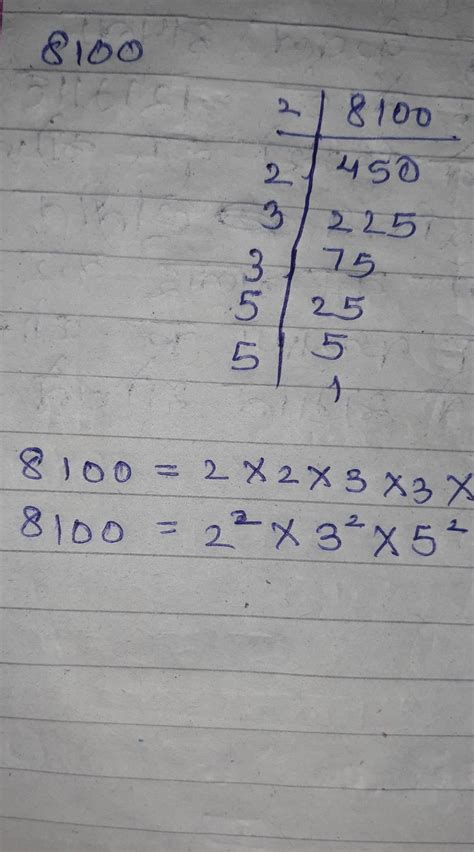 8100
2 | 8100
2 | 450
3 | 225
3 | 75
5 | 25
5 | 5
1
8100 = 2 × 2 × 3 × 3 ×
8100 = 2² × 3² × 5²